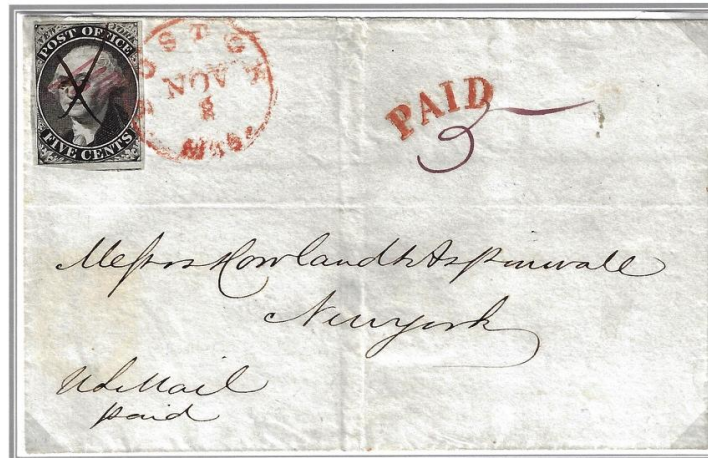 POST OFFICE
FIVE CENTS
BOSTON
8
Mass.
PAID
5
Messrs Howland & Aspinwall
New york
U S Mail
paid